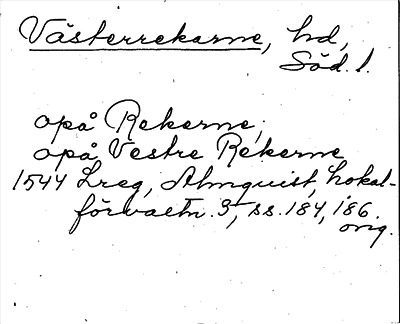 Västerrekarne, hd,
Söd. l.
opå Rekerne,
opå Vestre Rekerne
1544 Lreg, Almquist, Lokal-
förvaltn. 3, ss. 184, 186.
orig.